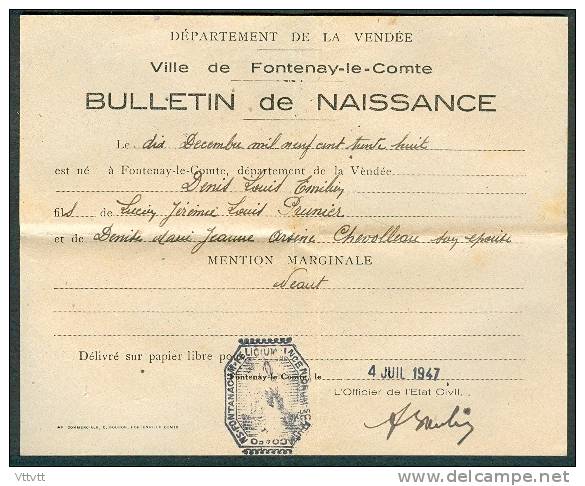 DÉPARTEMENT DE LA VENDÉE
Ville de Fontenay-le-Comte
BULLETIN de NAISSANCE
Le dix Decembre mil neuf cent trente huit
est né à Fontenay-le-Comte, département de la Vendée
Denis Louis Emilien
fils de Lucien Jérémie Louis Prunier
et de Denise Marie Jeanne Arsène Chevolleau son épouse
MENTION MARGINALE
Néant
Délivré sur papier libre pour
Fontenay-le-Comte, le 4 JUIL 1947
L'Officier de l'Etat Civil,
Vttvtt
delcampe.net